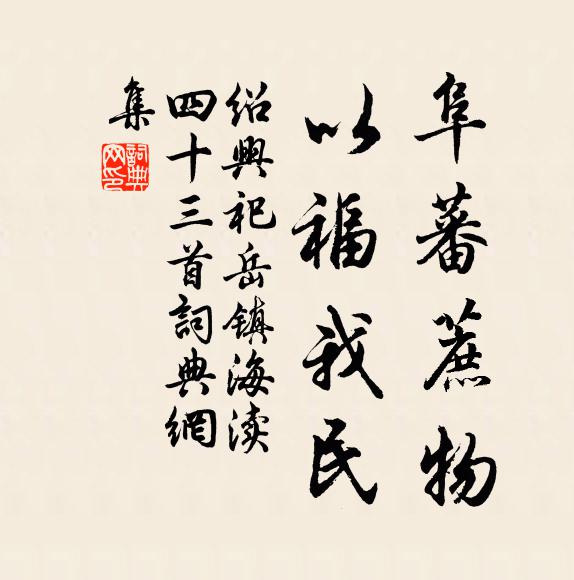 阜蕃蔗物
以福我民
绍興祀岳镇海渎
四十三首詞典網
集
詞典网印